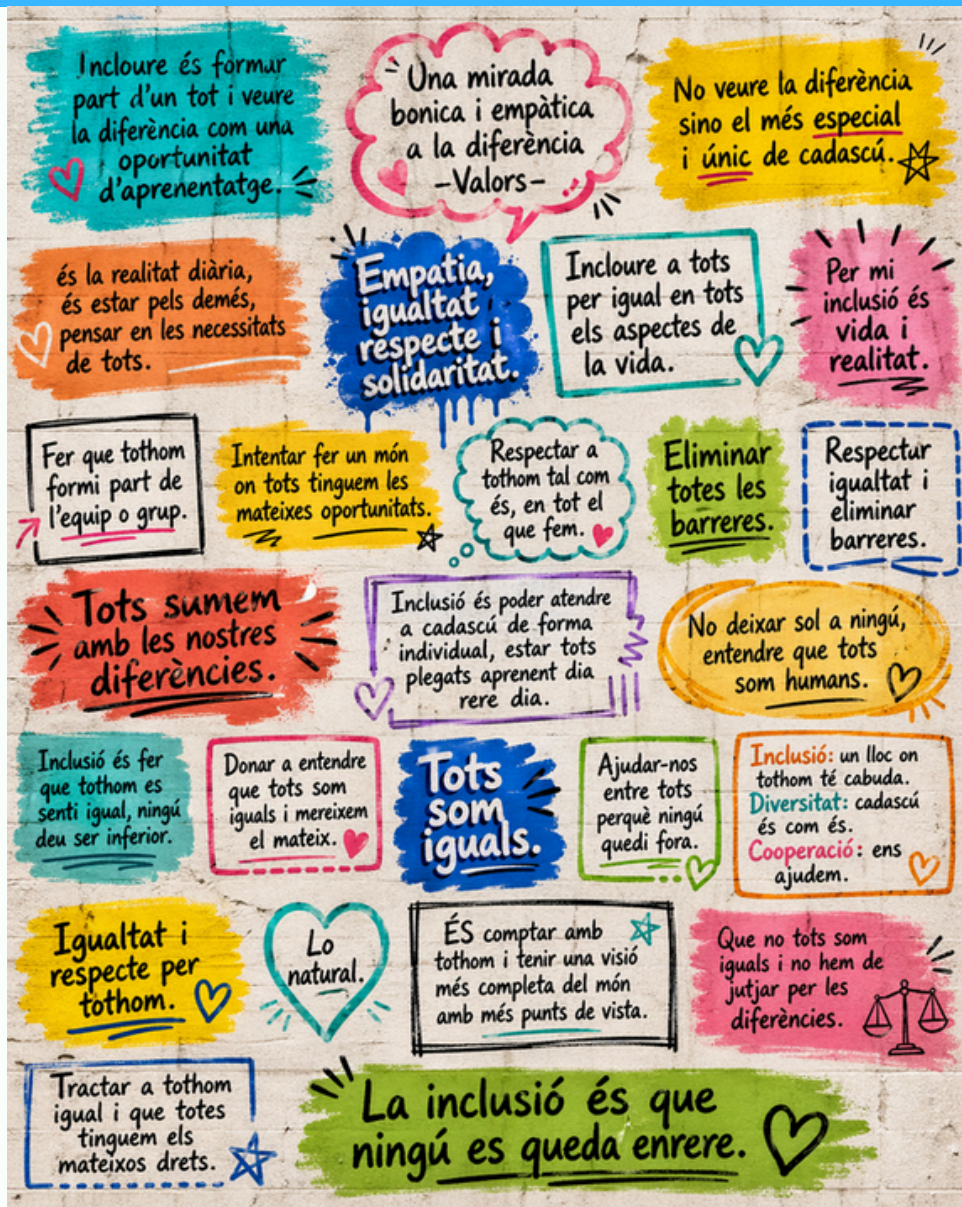 Incloure és formar
part d'un tot i veure
la diferència com una
oportunitat
d'aprenentatge.
Una mirada
bonica i empàtica
a la diferència
-Valors-
No veure la diferència
sino el més especial
i únic de cadascú.
és la realitat diària,
és estar pels demés,
pensar en les necessitats
de tots.
Empatia,
igualtat
respecte i
solidaritat.
Incloure a tots
per igual en tots
els aspectes de
la vida.
Per mi
inclusió és
vida i
realitat.
Fer que tothom
formi part de
l'equip o grup.
Intentar fer un món
on tots tinguem les
mateixes oportunitats.
Respectar a
tothom tal com
és, en tot el
que fem.
Eliminar
totes les
barreres.
Respectur
igualtat i
eliminar
barreres.
Tots sumem
amb les nostres
diferències.
Inclusió és poder atendre
a cadascú de forma
individual, estar tots
plegats aprenent dia
rere dia.
No deixar sol a ningú,
entendre que tots
som humans.
Inclusió és fer
que tothom es
senti igual, ningú
deu ser inferior.
Donar a entendre
que tots som
iguals i mereixem
el mateix.
Tots
som
iguals.
Ajudar-nos
entre tots
perquè ningú
quedi fora.
Inclusió: un lloc on
tothom té cabuda.
Diversitat: cadascú
és com és.
Cooperació: ens
ajudem.
Igualtat i
respecte per
tothom.
Lo
natural.
ÉS comptar amb
tothom i tenir una visió
més completa del món
amb més punts de vista.
Que no tots som
iguals i no hem de
jutjar per les
diferències.
Tractar a tothom
igual i que totes
tinguem els
mateixos drets.
La inclusió és que
ningú es queda enrere.